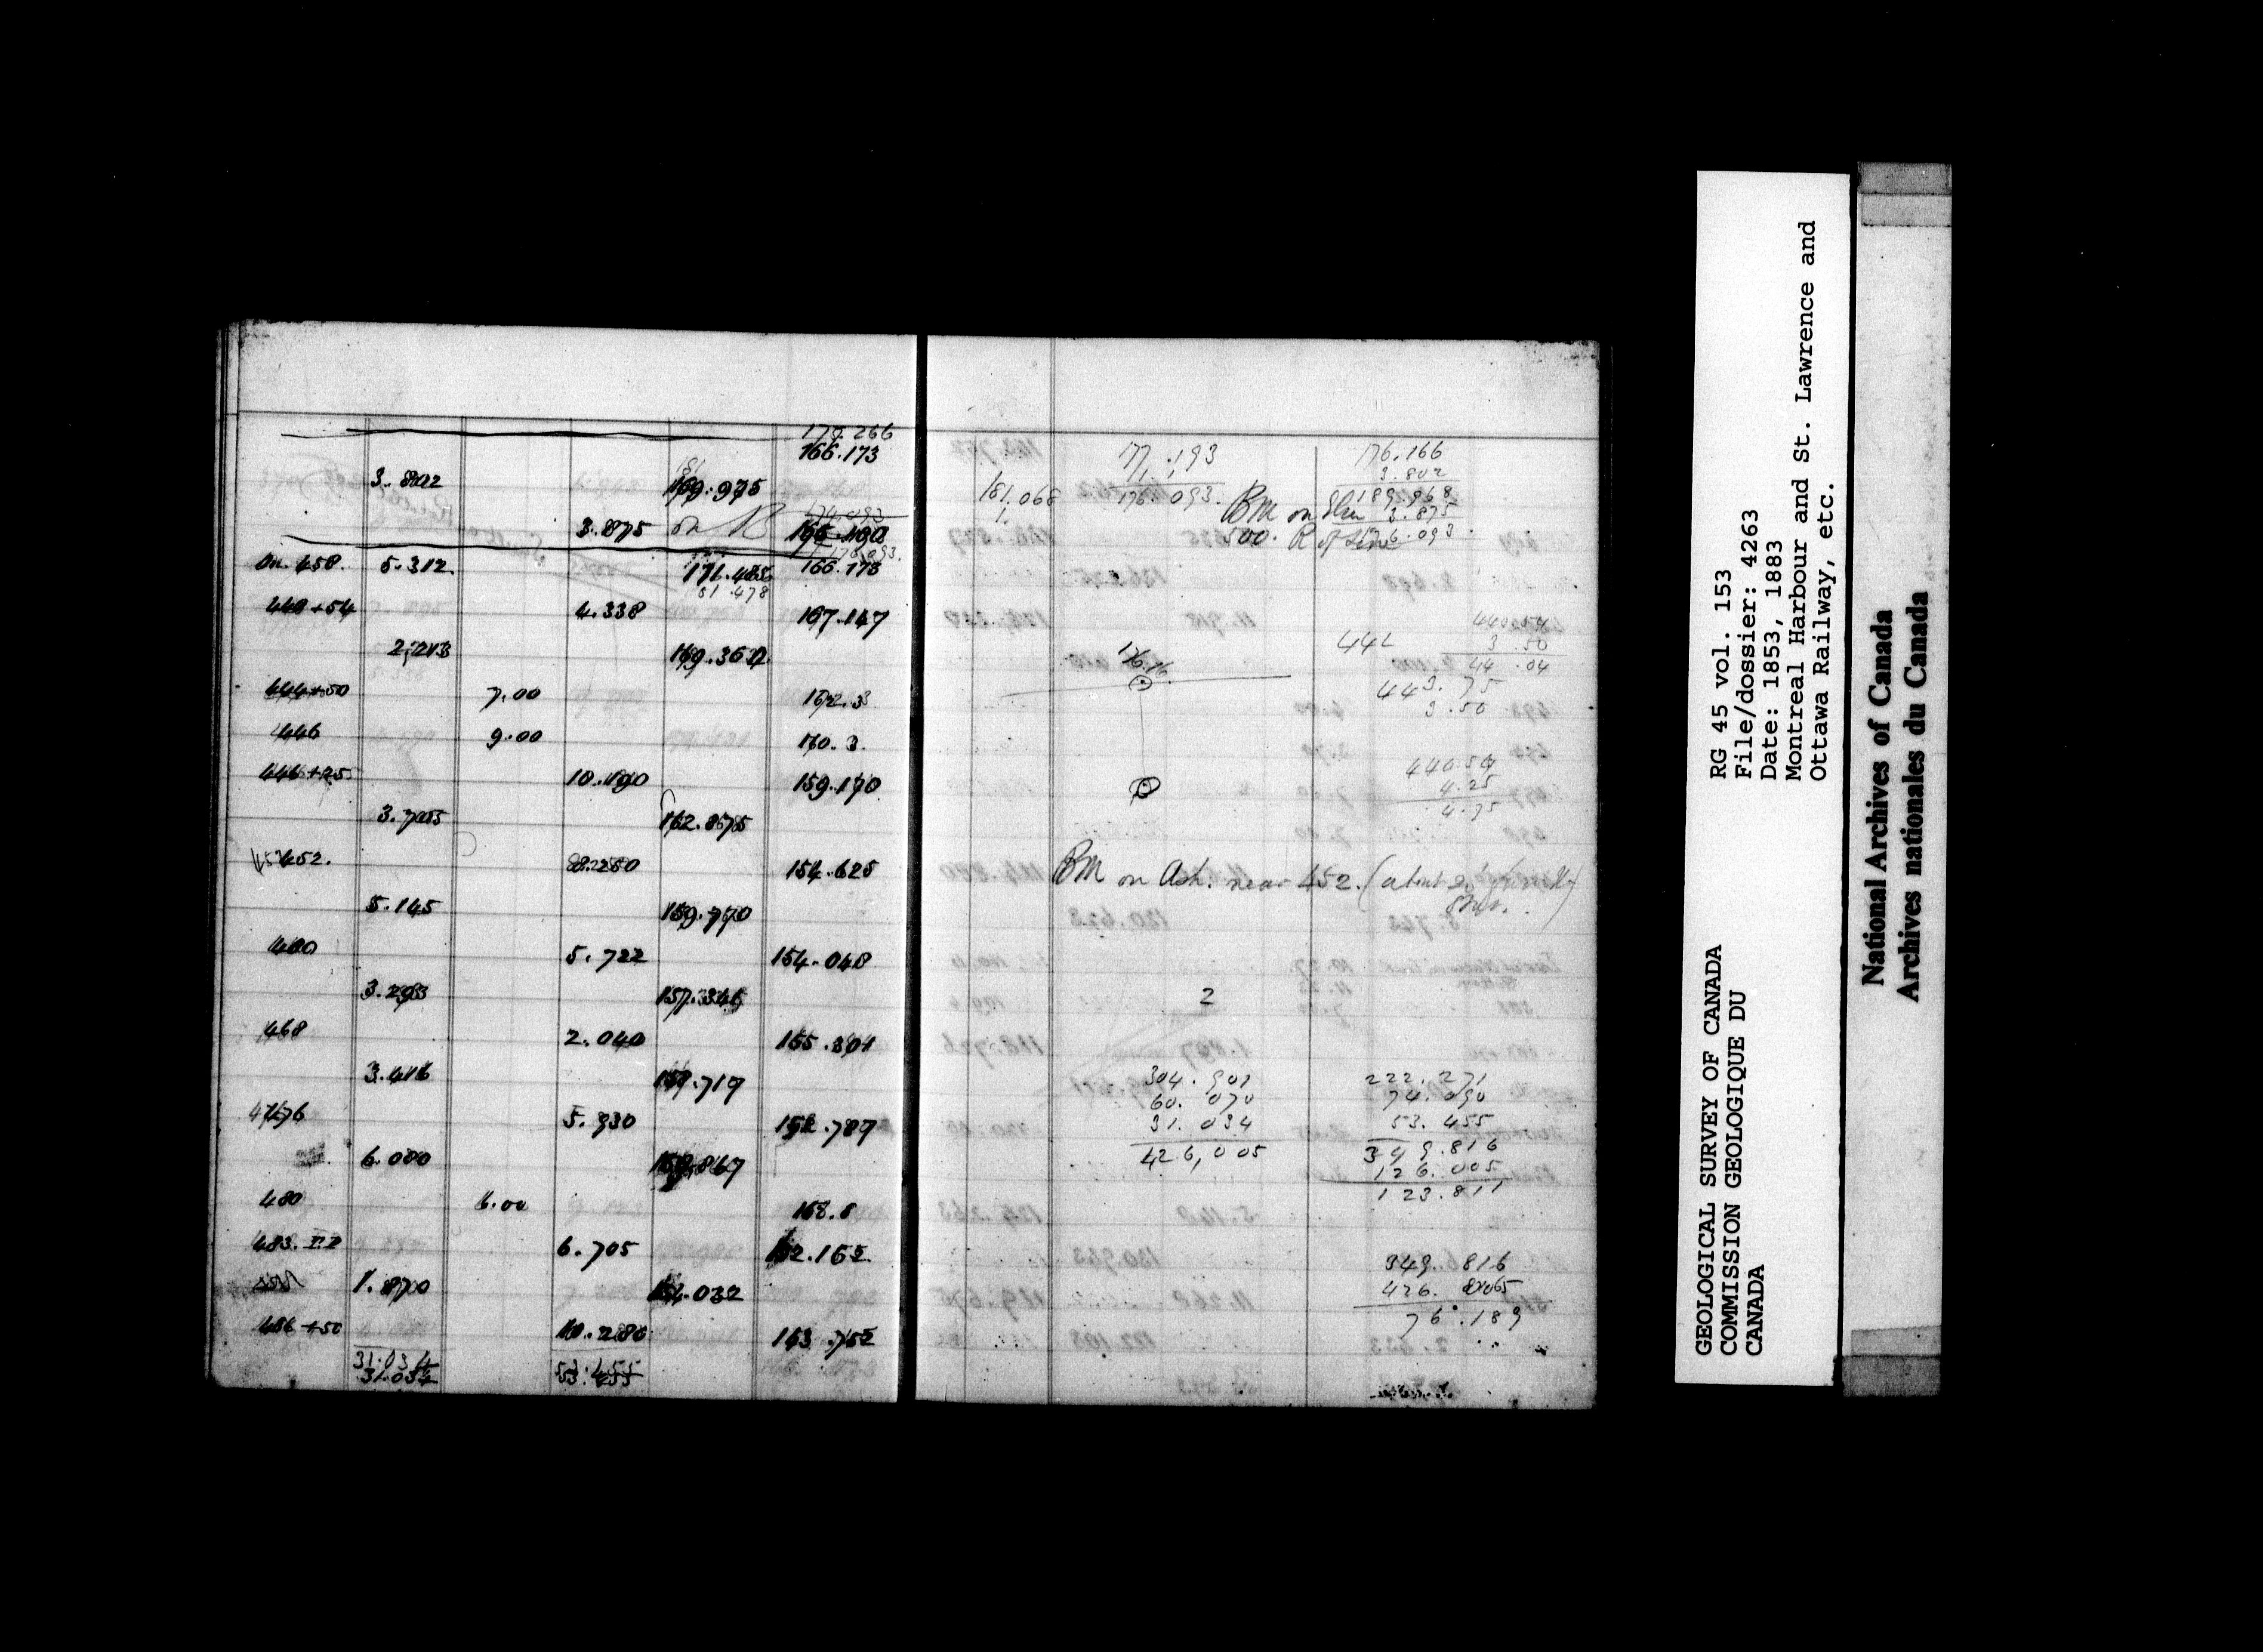 179.266
166.173
3.802 169.975
3.875 on B 166.100
176.093.
On. 458. 5.312 171.485 166.173
81.478
440+54 4.338 167.147
2.213 169.362
444+50 7.00 162.3
446 9.00 160.3.
446+25 10.190 159.170
3.705 162.875
452. 8.250 154.625
5.145 159.770
460 5.722 154.048
3.293 157.341
468 2.040 155.301
3.416 158.717
476 5.930 152.787
6.080 158.867
480 6.00 152.8
483. 6.705 152.162
1.870 154.032
486+50 10.280 143.752
31.034 53.455
31.034 53.455
177.193 176.166
1.1 3.802
181.068 176.093. 189.968
BM on Elm 3.875
500. R of Line 176.093
440.54
442 3.50
44.04
176.16
443.75
3.50
440.50
4.25
4.75
BM on Ash. near 452. (about
2
304.901 222.271
60.070 74.090
31.034 53.455
426,005 349.816
126.005
123.811
349.816
426.005
76.189
GEOLOGICAL SURVEY OF CANADA
COMMISSION GEOLOGIQUE DU
CANADA
RG 45 vol. 153
File/dossier: 4263
Date: 1853, 1883
Montreal Harbour and St. Lawrence and
Ottawa Railway, etc.
National Archives of Canada
Archives nationales du Canada